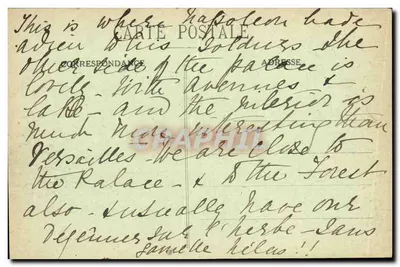 This is where Napoleon bade
adieu to his Soldiers. The
CARTE POSTALE
other side of the palace is
CORRESPONDANCE
ADRESSE
lovely - with avenues &
lake - and the interior is
much more interesting than
Versailles - We are close to
the Palace - & to the Forest
also - & usually have our
Déjeuner Sur l'herbe - Sans
famille hélas!!